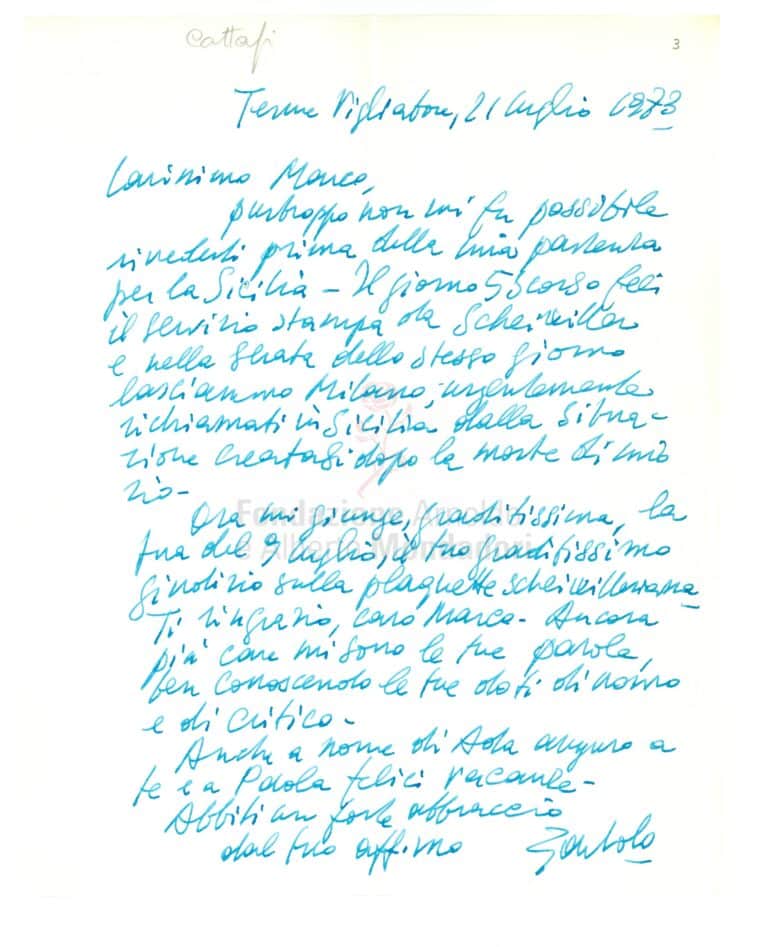 Cattafi
3
Terme Vigliatore, 21 luglio 1973
Carissimo Marco,
purtroppo non mi fu possibile
rivederti prima della mia partenza
per la Sicilia – Il giorno 5 scorso feci
il servizio stampa da Scheiwiller
e nella serata dello stesso giorno
lasciammo Milano, urgentemente
richiamati in Sicilia dalla situa-
zione creatasi dopo la morte di mio
zio –
Ora mi giunge, graditissima, la
tua del 9 luglio, il tuo graditissimo
giudizio sulla plaquette scheiwilleriana
Ti ringrazio, caro Marco – Ancora
più care mi sono le tue parole,
ben conoscendo le tue doti di uomo
e di critico –
Anche a nome di Ada auguro a
te e a Paola felici vacanze –
Abbiti un forte abbraccio
dal tuo aff.mo Bartolo
Fondazione Arnoldo
e Alberto Mondadori